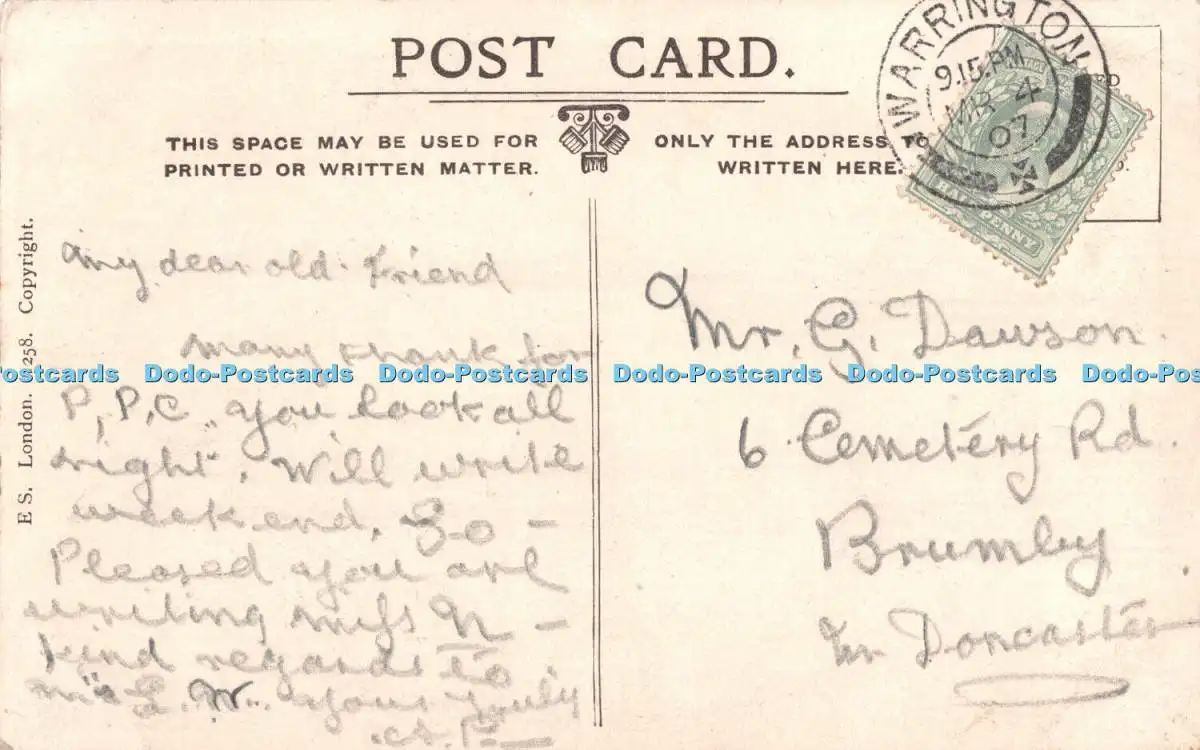 POST CARD.
THIS SPACE MAY BE USED FOR
PRINTED OR WRITTEN MATTER.
ONLY THE ADDRESS TO
WRITTEN HERE.
WARRINGTON
9.15.PM
MR 4
07
HALFPENNY
E S. London. 258. Copyright.
My dear old. Friend
Many thank for
P,P,C,, you look all
right. Will write
week end.
Pleased you are
writing miss N –
kind regards to
L. W. yours
Mr. G. Dawson.
6 Cemetery Rd.
Brumby
Nr Doncaster
Dodo-Postcards Dodo-Postcards Dodo-Postcards Dodo-Postcards